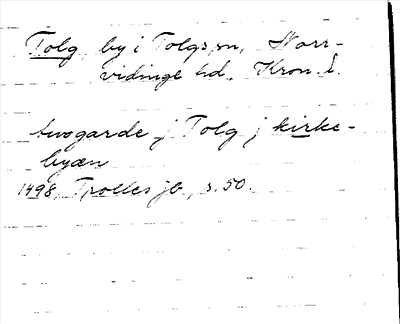 Tolg, by i Tolgs sn, Norr-
vidinge hd, Kron. l.
twogarde j Tolg j kirke-
byæn
1498, Trolles jb, s. 50.